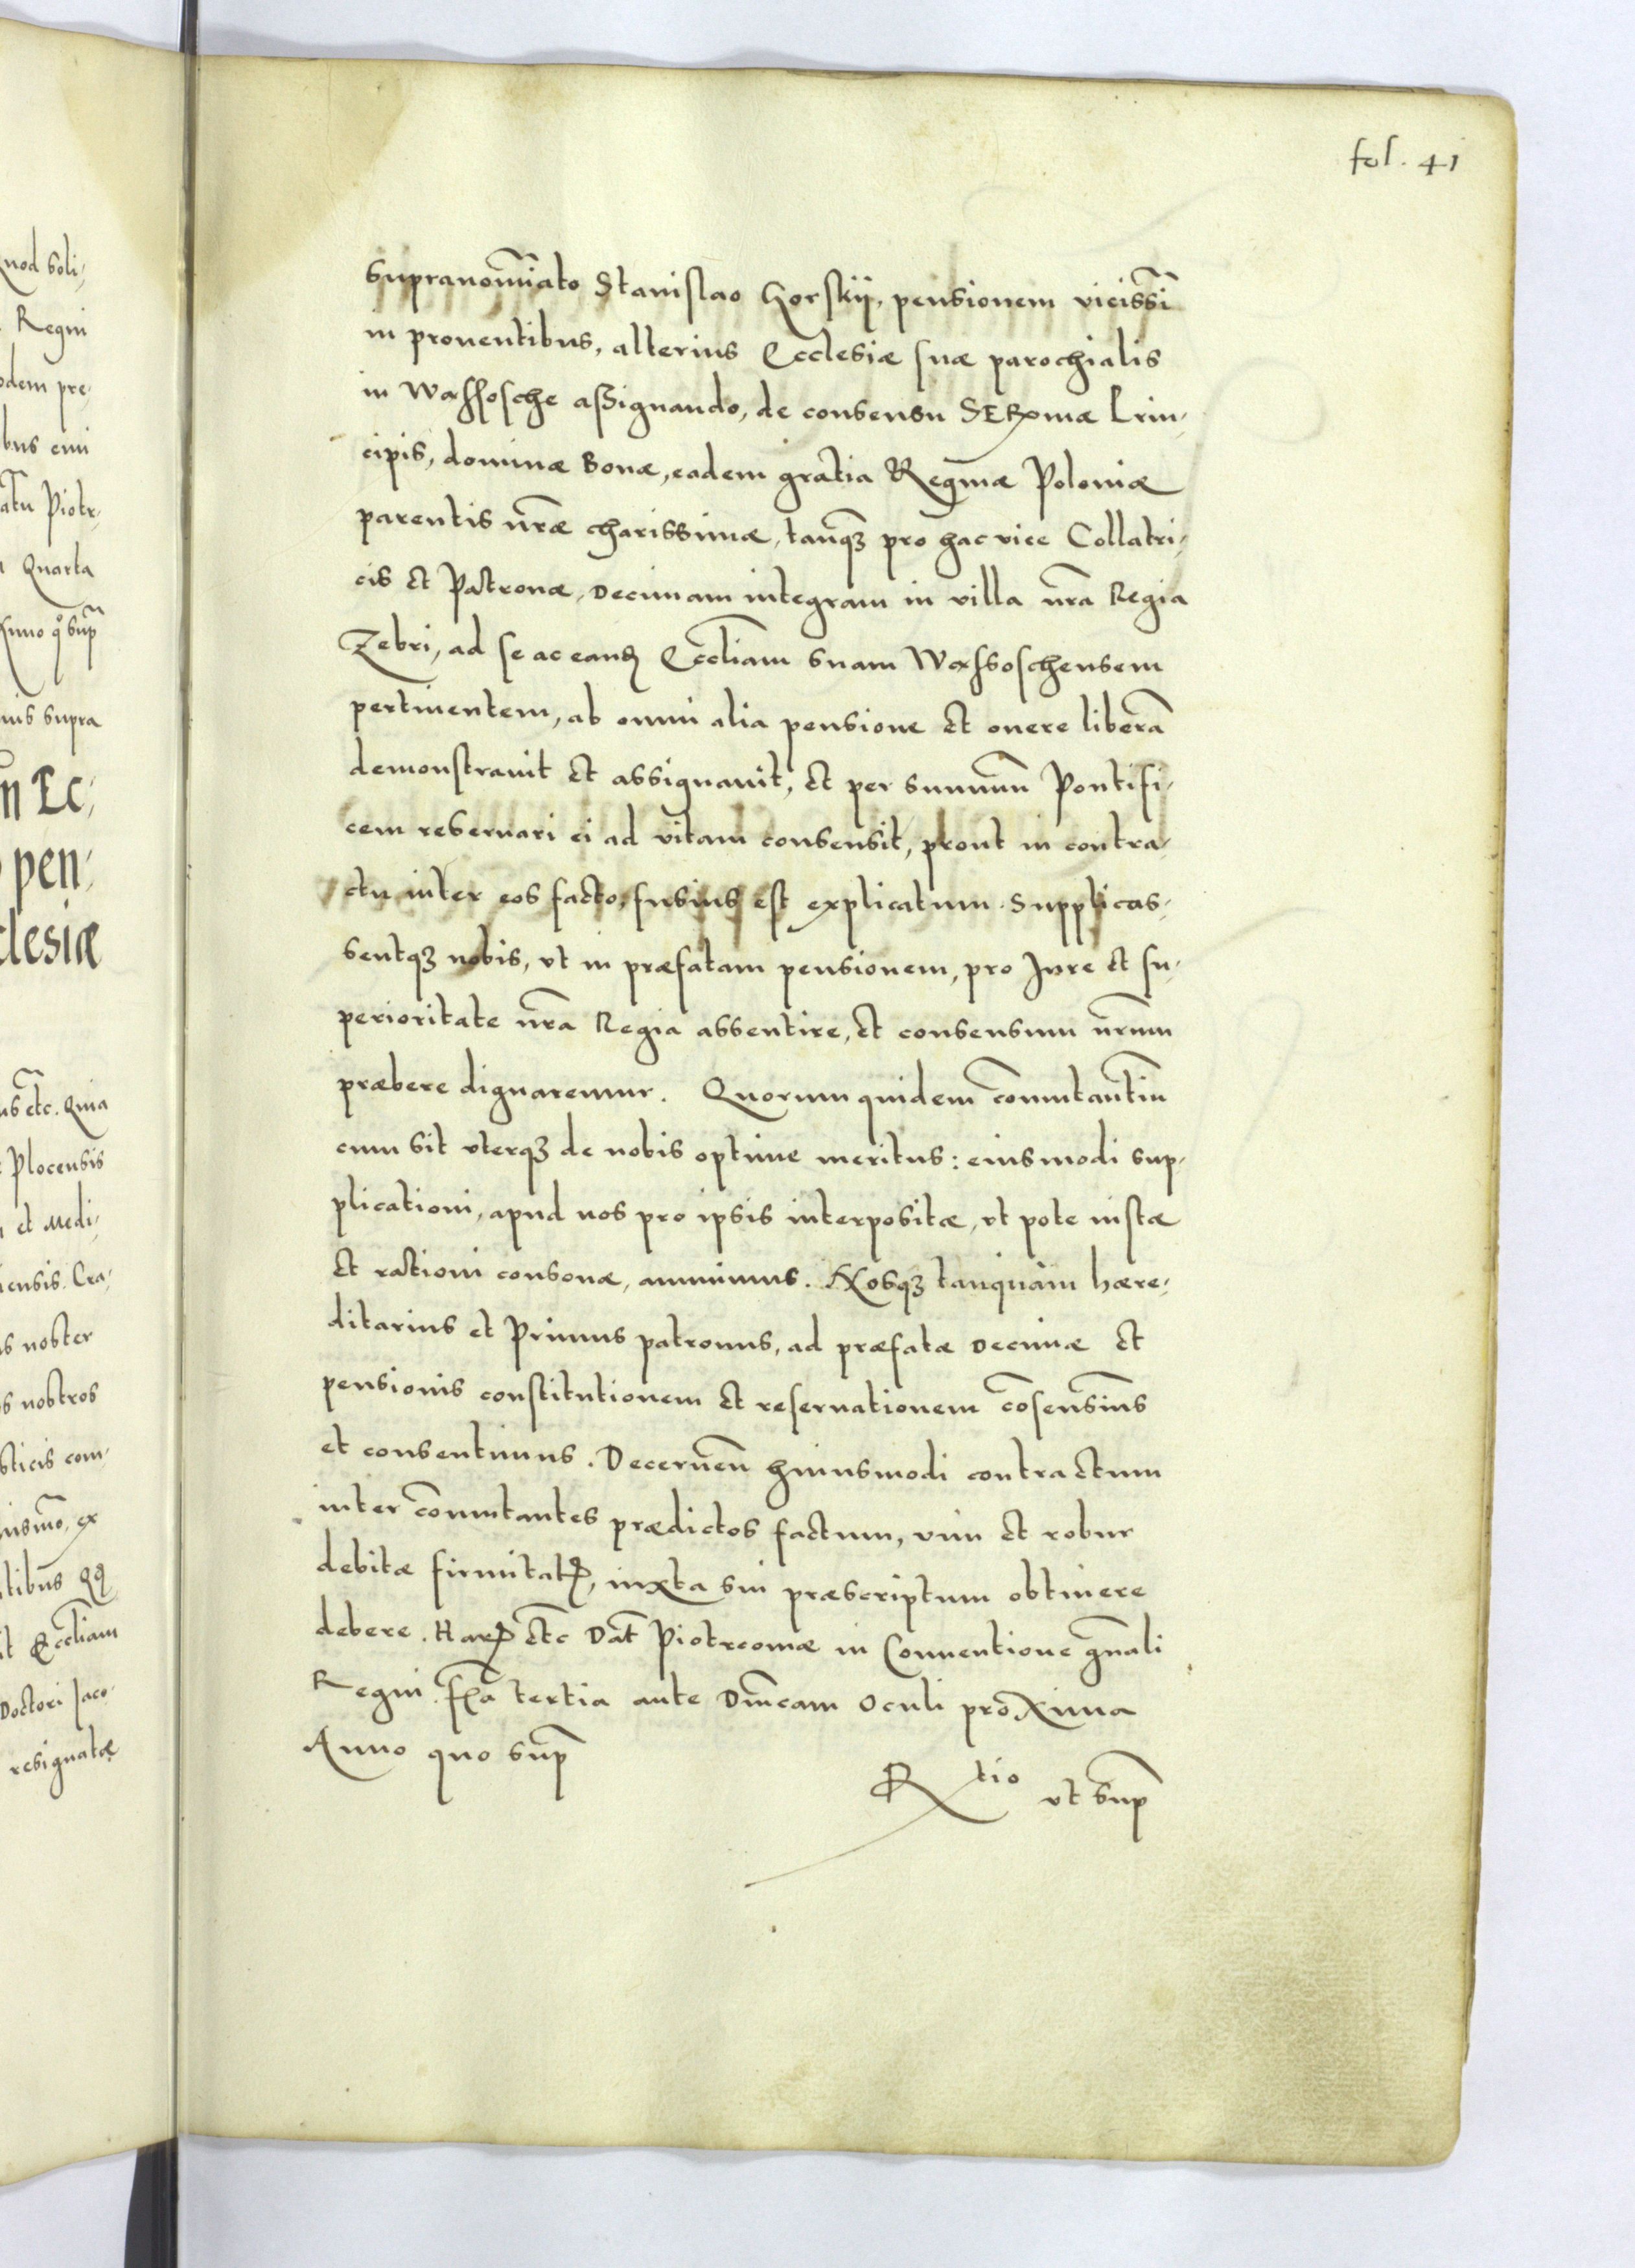 fol. 41
supranom̃iato Stanislao Gorskij, pensionem vicissĩ
in prouentibus, alterius Ecclesiæ suæ parochialis
in Wassosche assignando, de consensu SERƷmæ Prin-
cipis, dominæ Bonæ, eadem gratia Reginæ Poloniæ
parentis nr̃æ charissimæ, tanqꝫ pro hac vice Collatri-
cis et Patronæ, Decimam integram in villa nr̃a Regia
Zebri, ad se ac eandꝫ Eccl̃iam suam Wassoschensem
pertinentem, ab omni alia pensione et onere liberã
demonstrauit et assignauit, et per summũ Pontifi-
cem reseruari ei ad vitam consensit, prout in contra-
ctu inter eos facto, fusius est explicatum. Supplicas-
sentqꝫ nobis, vt in præfatam pensionem, pro Jure et su-
perioritate nr̃a Regia assentire, et consensum nr̃um
præbere dignaremur. Quorum quidem com̃utantiũ
cum sit vterqꝫ de nobis optime meritus: eiusmodi sup-
plicationi, apud nos pro ipsis interpositæ, vt pote iustæ
et rationi consonæ, annuimus. Nosqꝫ tanquàm hære-
ditarius et Primus patronus, ad præfatæ Decimæ et
pensionis constitutionem et reseruationem cõsensim̃s
et consentimus. Decernen̄ huiusmodi contractum
inter com̃utantes prædictos factum, vim et robur
debitæ firmitatꝭ, iuxta sui præscriptum obtinere
debere. Harꝝ etc̃ Dat̃ Piotrcouiæ in Conuentione gñali
Regni. fr̃a tertia ante Dñicam Oculi proxima
Anno quo sup̃
Rtio vt sup̃
quod soli-
Regni
odem pre-
bus cui
atu Piotr-
Quarta
Anno q̊ sup̃
nis supra
m Ec-
pen-
clesiæ
us etc̃. Quia
Plocensis
et Medi-
iensis. Cra-
s noster
s nostros
sticis com-
uismõ, ex
tibus
t Eccl̃iam
Doctori Jaco-
resignatæ